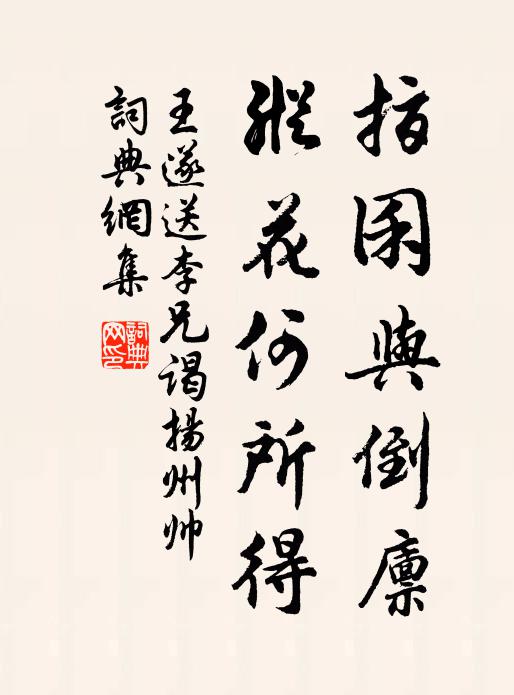 指囷與倒廩
縱花何所得
王遂送李兄謁揚州帅
詞典網集
詞典
网印